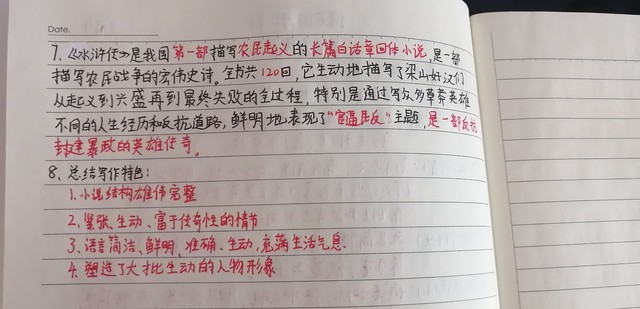 Date. /
7.《水浒传》是我国第一部描写农民起义的长篇白话章回体小说,是一部
描写农民战争的宏伟史诗。全书共120回,它生动地描写了梁山好汉们
从起义到兴盛再到最终失败的全过程,特别是通过写众多草莽英雄
不同的人生经历和反抗道路,鲜明地表现了"官逼民反"主题,是一部反抗
封建暴政的英雄传奇。
8、总结写作特色:
1.小说结构雄伟完整
2.紧张、生动、富于传奇性的情节
3、语言简洁、鲜明、准确、生动,充满生活气息.
4.塑造了大批生动的人物形象